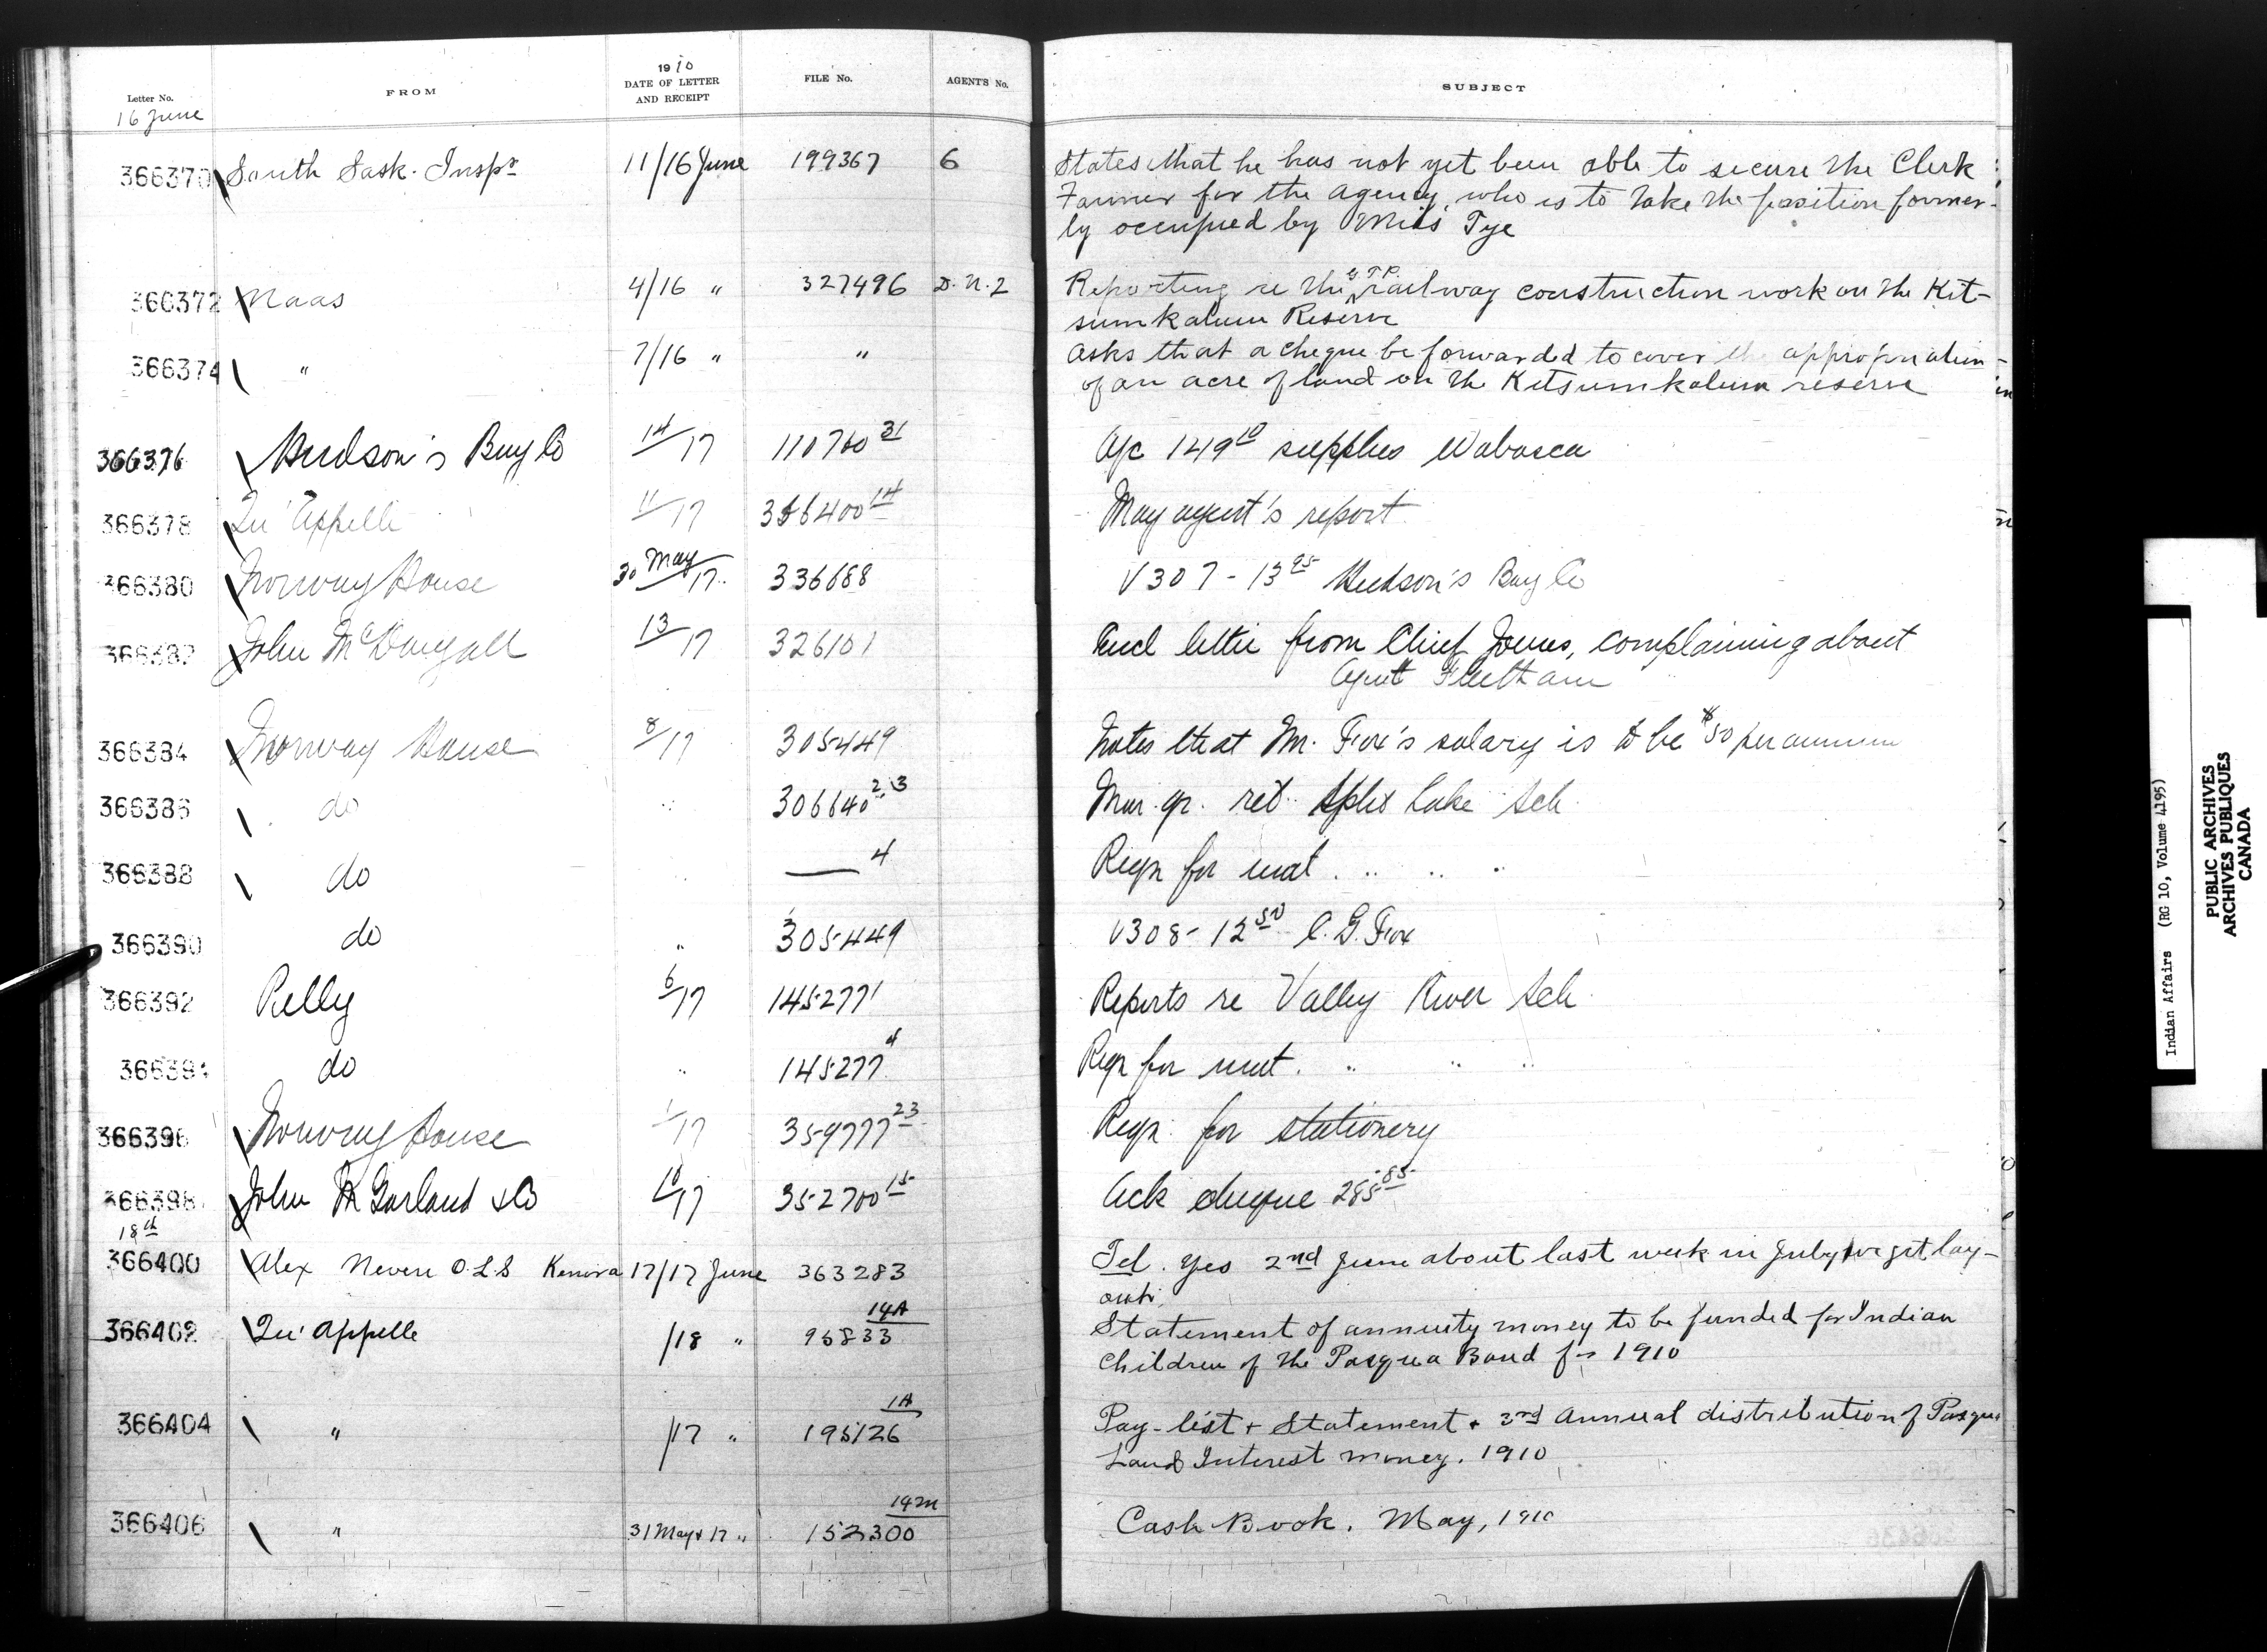 Letter No. FROM 1910 DATE OF LETTER AND RECEIPT FILE No. AGENT'S No. SUBJECT
16 June
366370 South Sask. Inspr 11/16 June 199367 6 States that he has not yet been able to secure the Clerk
Farmer for the agency, who is to take the position former-
ly occupied by Miss Tye
366372 Naas 4/16 " 327496 D.N.2 Reporting re the G T P railway construction work on the Kit-
sumkalum Reserve
366374 " 7/16 " " Asks that a cheque be forwarded to cover the appropriation
of an acre of land on the Kitsumkalum reserve
366376 Hudson's Bay Co 14/17 110700 31 A/c 149 10 supplies Wabasca
366378 Qu'Appelle 11/17 356400 14 May agent's report
366380 Norway House 30 May/17 336688 V307 - 13 95 Hudson's Bay Co
366382 John McDougall 13/17 326101 Encl letter from Chief James, complaining about
Agent Fleetham
366384 Norway House 8/17 305449 Notes that Mr. Fox's salary is to be $50 per annum
366386 do " 306640 2.3 Mar. qr. ret. Split Lake Sch.
366388 do " — 4 Reqn for mat. " " "
366390 do " 305449 V308 - 12 50 C. G. Fox
366392 Pelly 6/17 145277 1 Reports re Valley River Sch
366394 do " 145277 4 Reqn for mat. " " "
366396 Norway House 1/17 359777 23 Reqn. for stationery
366398 John M Garland & Co 10/17 352700 15 Ack cheque 285 85
18th
366400 Alex Niven O.L.S Kenora 17/17 June 363283 Tel. Yes 2nd June about last week in July we get lay-
out.
366402 Qu'Appelle /18 " 95833 14A Statement of annuity money to be funded for Indian
Children of the Pasqua Band for 1910
366404 " /17 " 195126 1A Pay-list & Statement & 3rd Annual distribution of Pasqua
Land Interest money. 1910
366406 " 31 May & 17 " 152300 14M Cash Book. May, 1910
Indian Affairs (RG 10, Volume 4195)
PUBLIC ARCHIVES
ARCHIVES PUBLIQUES
CANADA